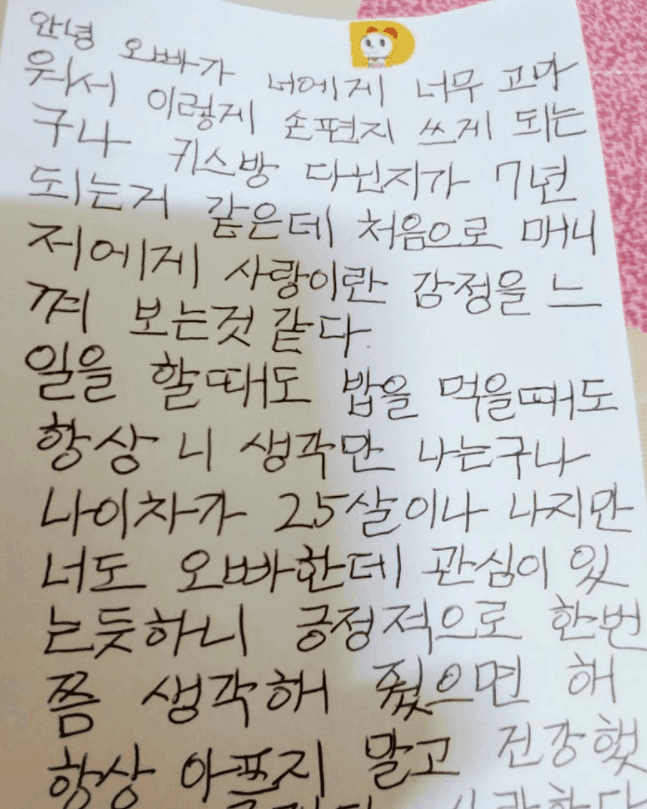 안녕 오빠가 너에게 너무 고마
워서 이렇게 손편지 쓰게 되는
구나 귀스방 다닌지가 7년
되는거 같은데 처음으로 매니
저에게 사랑이란 감정을 느
껴 보는것 같다
일을 할때도 밥을 먹을때도
항상 니 생각만 나는구나
나이차가 25살이나 나지만
너도 오빠한데 관심이 있
는듯하니 긍정적으로 한번
쯤 생각해 줬으면 해
항상 아프지 말고 건강했